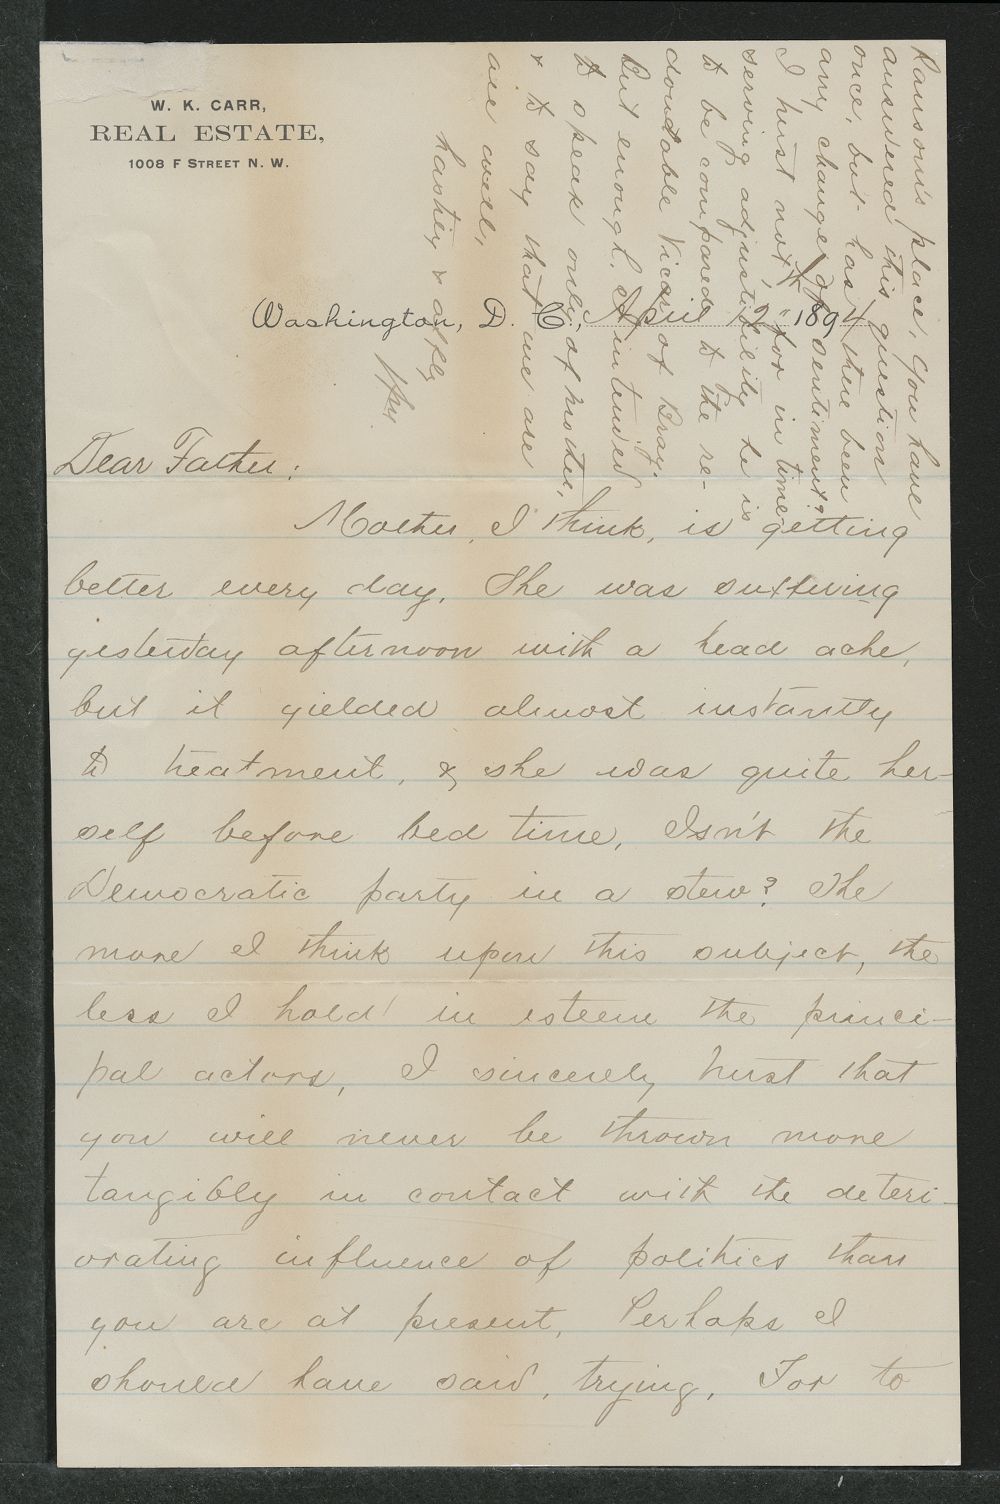 W. K. CARR,
REAL ESTATE,
1008 F STREET N. W.
Washington, D. C., April 2" 1894
Dear Father:
Mother, I think, is getting
better every day. She was suffering
yesterday afternoon with a head ache,
but it yielded almost instantly
to treatment, & she was quite her-
self before bed time. Isn't the
Democratic party in a stew? The
more I think upon this subject, the
less I hold in esteem the princi-
pal actors, I sincerely trust that
you will never be thrown more
tangibly in contact with the deteri-
orating influence of politics than
you are at present. Perhaps I
should have said, trying. For to
Ransom's place. You have
answered this question
once, but has there been
any change of sentiment?
I trust not, for in time
serving adjustibility he is
to be compared to the re-
doubtable Vicar of Bray.
But enough. I intended
to speak only of mother,
& to say that we are
all well.
hastily & affly